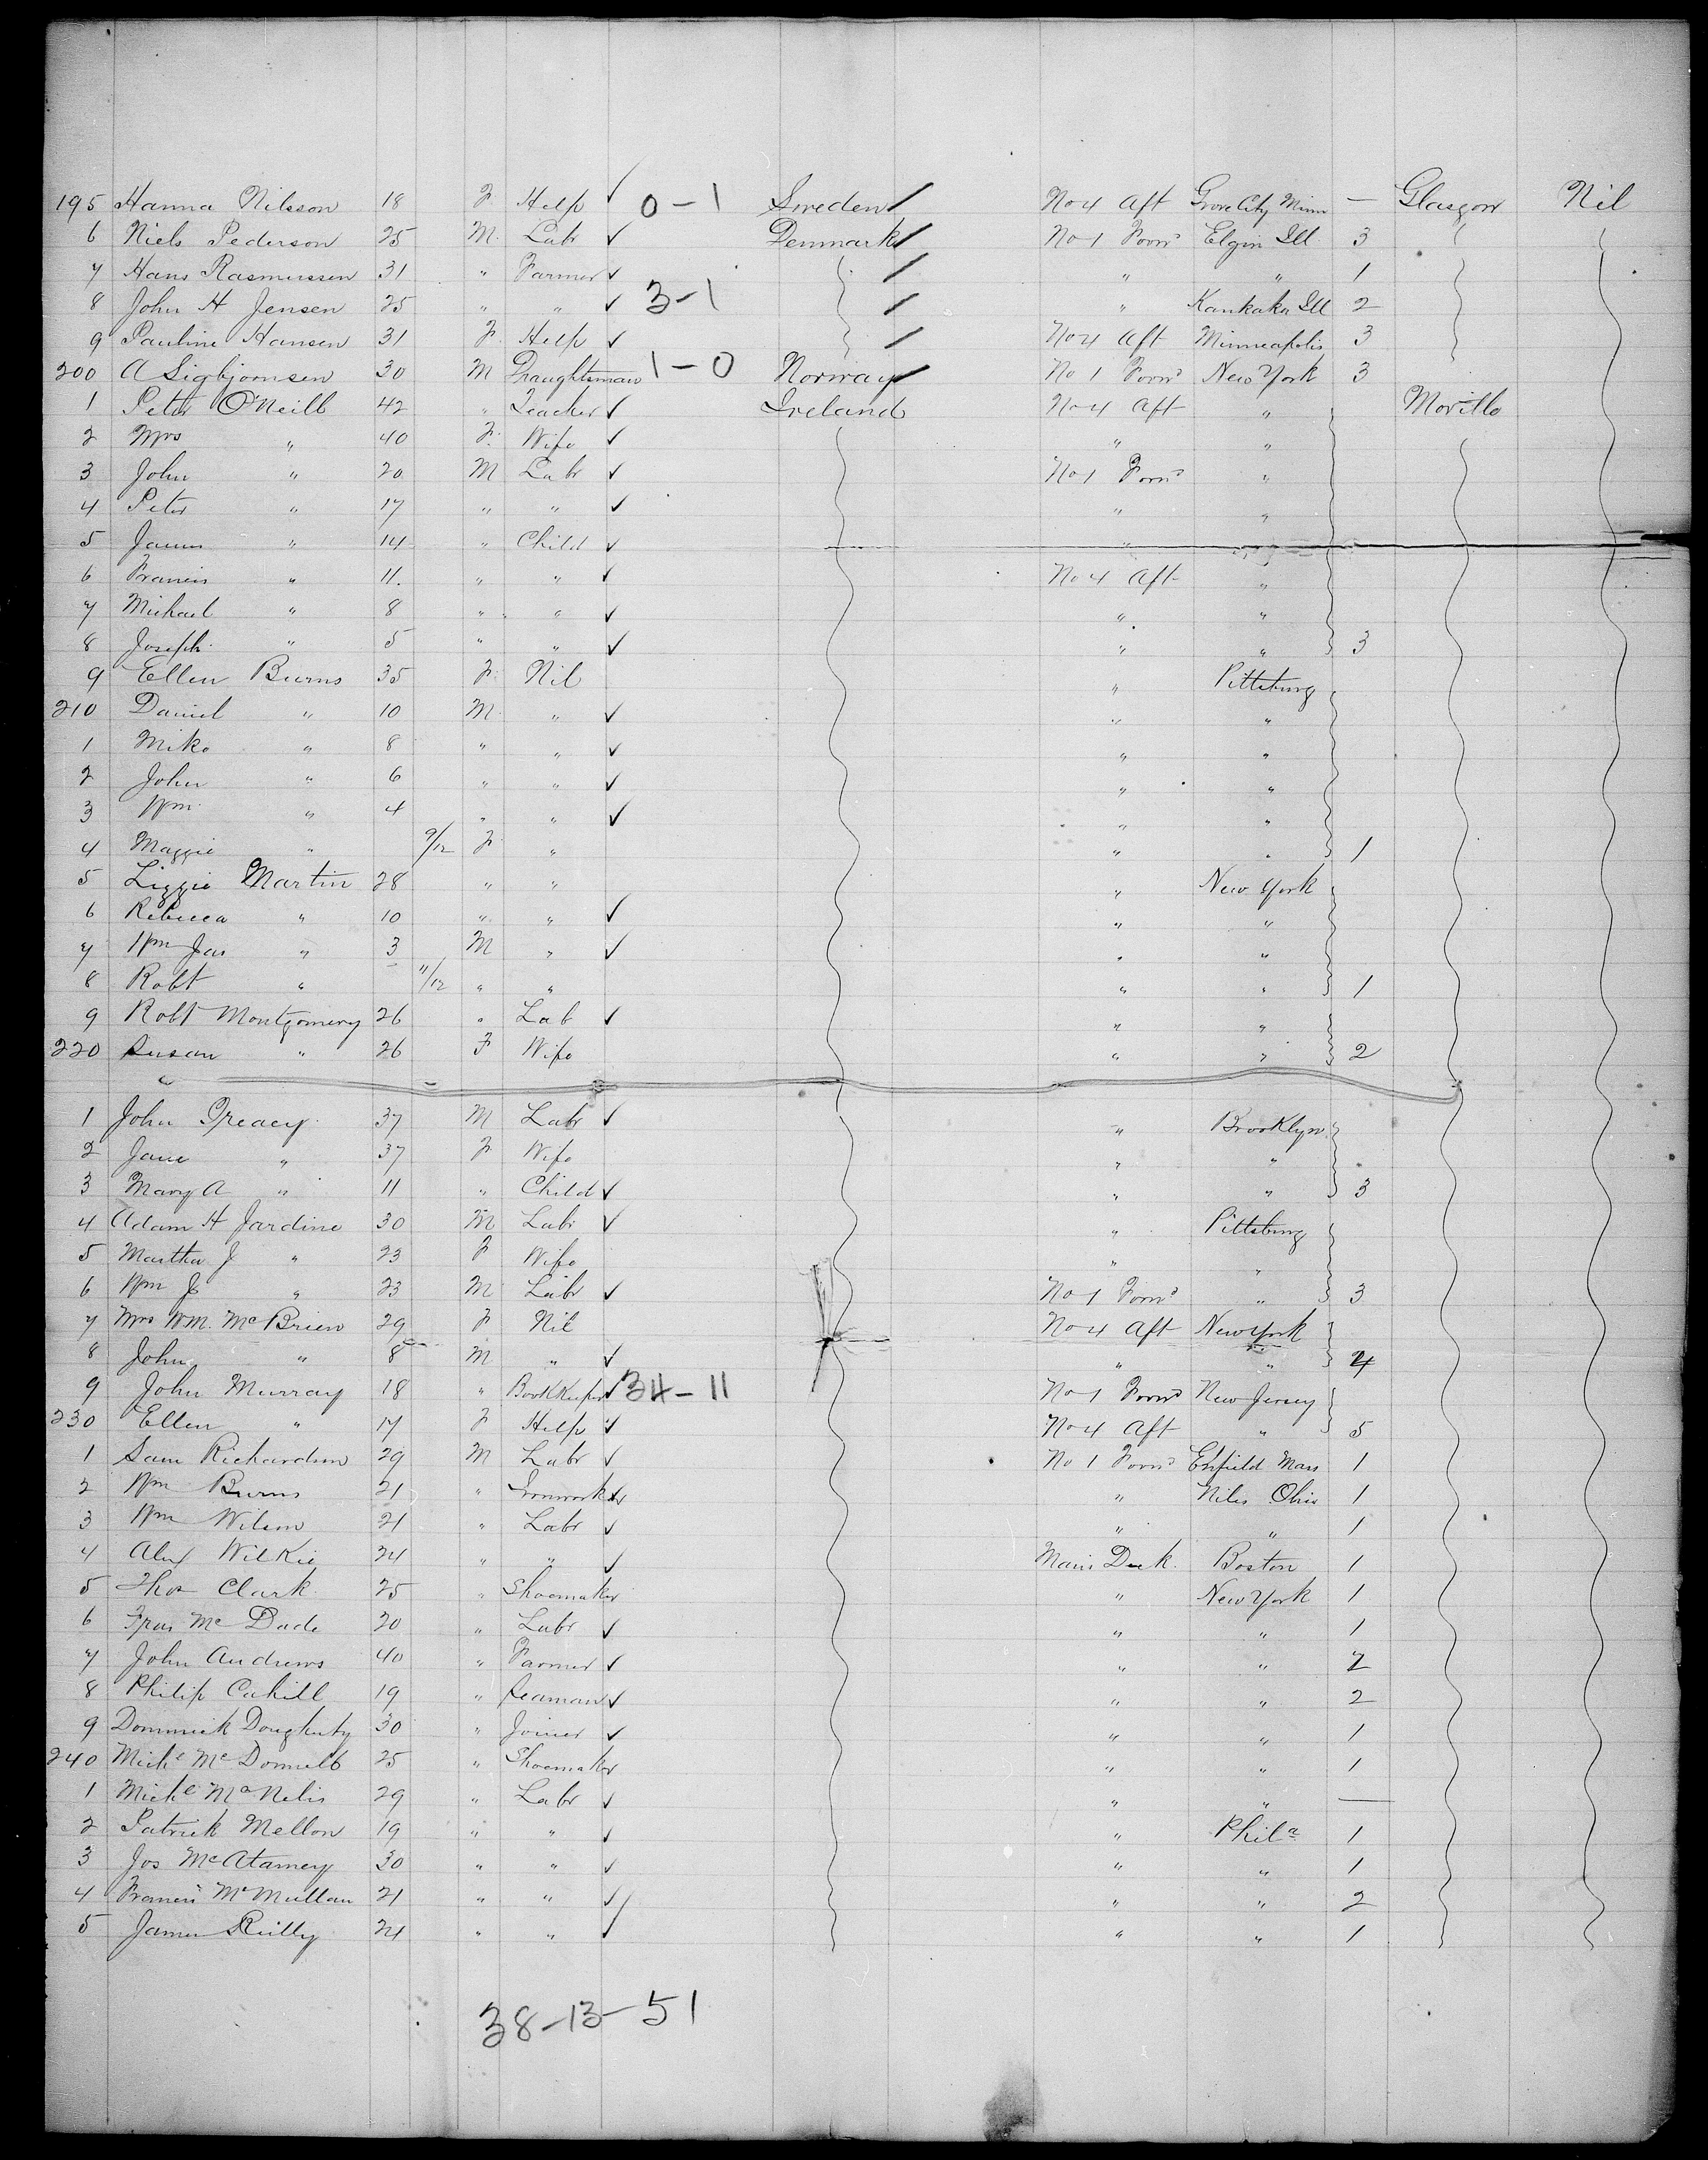 195 Hanna Nilsson 18 F Help ✓ 0-1 Sweden / No 4 Aft Grove City Minn — Glasgow Nil
6 Niels Pederson 25 M. Labr ✓ Denmark / No 1 Forwd Elgin Ill. 3
7 Hans Rasmussen 31 " Farmer ✓ / " " 1
8 John H Jensen 25 " " ✓ 3-1 / " Kankake Ill 2
9 Pauline Hansen 31 F. Help ✓ / No 4 Aft Minneapolis 3
200 A Sigbjornsen 30 M Draughtsman 1-0 Norway / No 1 Forwd New York 3
1 Peter O'Neill 42 " Teacher ✓ Ireland No 4 Aft " Moville
2 Mrs " 40 F. Wife ✓ " "
3 John " 20 M Labr ✓ No 1 Forwd "
4 Peter " 17 " " ✓ " "
5 James " 14 " Child ✓ " "
6 Francis " 11. " " ✓ No 4 Aft "
7 Michael " 8 " " ✓ " "
8 Joseph " 5 " " ✓ " " 3
9 Ellen Burns 35 F. Nil " Pittsburg
210 Daniel " 10 M. " ✓ " "
1 Mike " 8 " " ✓ " "
2 John " 6 " " ✓ " "
3 Wm " 4 " " ✓ " "
4 Maggie " 9/12 F " " " 1
5 Lizzie Martin 28 " " " New York
6 Rebecca " 10 " " ✓ " "
7 Wm Jas " 3 M " ✓ " "
8 Robt " 11/12 " " " " 1
9 Robt Montgomery 26 " Lab ✓ " "
220 Susan " 26 F Wife " " 2
1 John Treacy 37 M Labr ✓ " Brooklyn
2 Jane " 37 F Wife " "
3 Mary A " 11 " Child ✓ " " 3
4 Adam H Jardine 30 M Labr ✓ " Pittsburg
5 Martha J " 23 F Wife " "
6 Wm J " 23 M Labr ✓ No 1 Forwd " 3
7 Mrs Wm. McBrien 29 F Nil No 4 Aft New York
8 John " 8 M " ✓ " " 4
9 John Murray 18 " Bookkeeper ✓ 34-11 No 1 Forwd New Jersey
230 Ellen " 17 F Help ✓ No 4 Aft " 5
1 Sam Richardson 29 M Labr ✓ No 1 Forwd Enfield Mass 1
2 Wm Burns 21 " Ironworker " Niles Ohio 1
3 Wm Wilson 21 " Labr ✓ " " 1
4 Alex Wilkie 24 " " ✓ Main Deck. Boston 1
5 Thos Clark 25 " Shoemaker " New York 1
6 Fras McDade 20 " Labr ✓ " " 1
7 John Andrews 40 " Farmer ✓ " " 2
8 Philip Cahill 19 " Seaman ✓ " " 2
9 Dominick Dougherty 30 " Joiner ✓ " " 1
240 Michl McDonnell 25 " Shoemaker " " 1
1 Michl McNelis 29 " Labr ✓ " " —
2 Patrick Mellon 19 " " ✓ " Phila 1
3 Jos McAtamney 30 " " ✓ " " 1
4 Francis McMullan 21 " " ✓ " " 2
5 James Reilly 24 " " ✓ " " 1
38-13-51